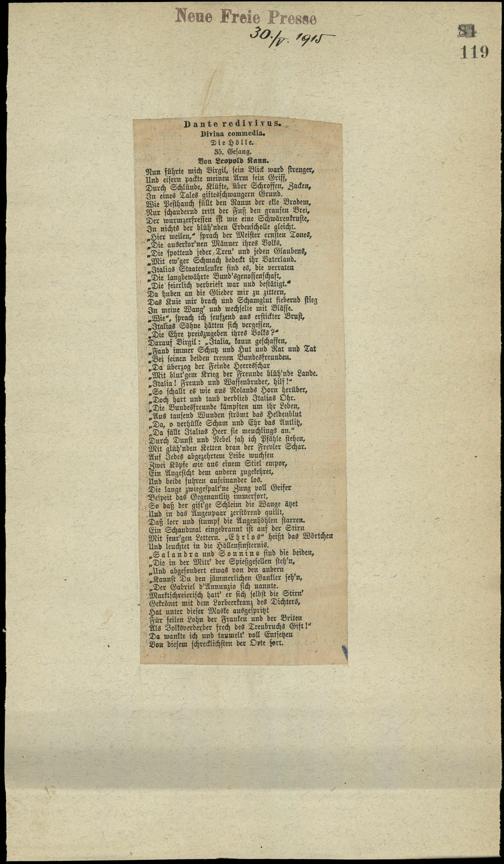 Neue Freie Presse
30./V. 1915
119
Dante redivivus.
Divina commedia.
Die Hölle.
35. Gesang.
Von Leopold Kann.
Nun führte mich Virgil, sein Blick ward strenger,
Und eisern packte meinen Arm sein Griff,
Durch Schlünde, Klüfte, über Schroffen, Zacken,
In eines Tales giftesschwangern Grund.
Wie Pesthauch füllt den Raum der ekle Brodem,
Nur schaudernd tritt der Fuß den grausen Brei,
Der wurmzerfressen ist wie eine Schwärenkruste,
In nichts der blüh'nden Erdenscholle gleicht.
„Hier weilen," sprach der Meister ernsten Tones,
„Die auserkor'nen Männer ihres Volks,
„Die spottend jeder Treu' und jeden Glaubens,
„Mit ew'ger Schmach bedeckt ihr Vaterland.
„Italias Staatenlenker sind es, die verraten
„Die langbewährte Bund'sgenossenschaft,
„Die feierlich verbrieft war und bestätigt."
Da huben an die Glieder mir zu zittern,
Das Knie mir brach und Schamglut fiebernd stieg
In meine Wang' und wechselte mit Blässe.
„Wie", sprach ich seufzend aus erstickter Brust,
„Italias Söhne hätten sich vergessen,
„Die Ehre preiszugeben ihres Volks?"
Darauf Virgil: „Italia, kaum geschaffen,
„Fand immer Schutz und Hut und Rat und Tat
„Bei seinen beiden treuen Bundesfreunden.
„Da überzog der Feinde Heeresschar
„Mit blut'gem Krieg der Freunde blüh'nde Lande.
„Italia! Freund und Waffenbruder, hilf!"
„So schallt es wie aus Rolands Horn herüber,
„Doch hart und taub verblieb Italias Ohr.
„Die Bundesfreunde kämpften um ihr Leben,
„Aus tausend Wunden strömt das Heldenblut
„Da, o verhülle Scham und Ehr das Antlitz,
„Da fällt Italias Heer sie meuchlings an."
Durch Dunst und Nebel sah ich Pfähle stehen,
Mit glüh'nden Ketten dran der Frevler Schar.
Auf Jedes abgezehrtem Leibe wuchsen
Zwei Köpfe wie aus einem Stiel empor,
Ein Angesicht dem andern zugekehret,
Und beide fuhren aufeinander los.
Die lange zwiegespalt'ne Zung voll Geifer
Bespeit das Gegenantlitz immerfort,
So daß der gift'ge Schleim die Wange ätzt
Und in das Augenpaar zerstörend quillt,
Daß leer und stumpf die Augenhöhlen starren.
Ein Schandmal eingebrannt ist auf der Stirn
Mit feur'gen Lettern. „Ehrlos" heißt das Wörtchen
Und leuchtet in die Höllenfinsternis.
„Salandra und Sonnino sind die beiden,
„Die in der Mitt' der Spießgesellen steh'n,
„Und abgesondert etwas von den andern
„Kannst Du den jämmerlichen Gaukler seh'n,
„Der Gabriel d'Annunzio sich nannte.
Marktschreierisch hatt' er sich selbst die Stirn'
Gekrönt mit dem Lorbeerkranz des Dichters,
Hat unter dieser Maske ausgespritzt
Für feilen Lohn der Franken und der Briten
Als Volksverderber frech des Treubruchs Gift!"
Da wankte ich und taumelt' voll Entsetzen
Von diesem schrecklichsten der Orte fort.